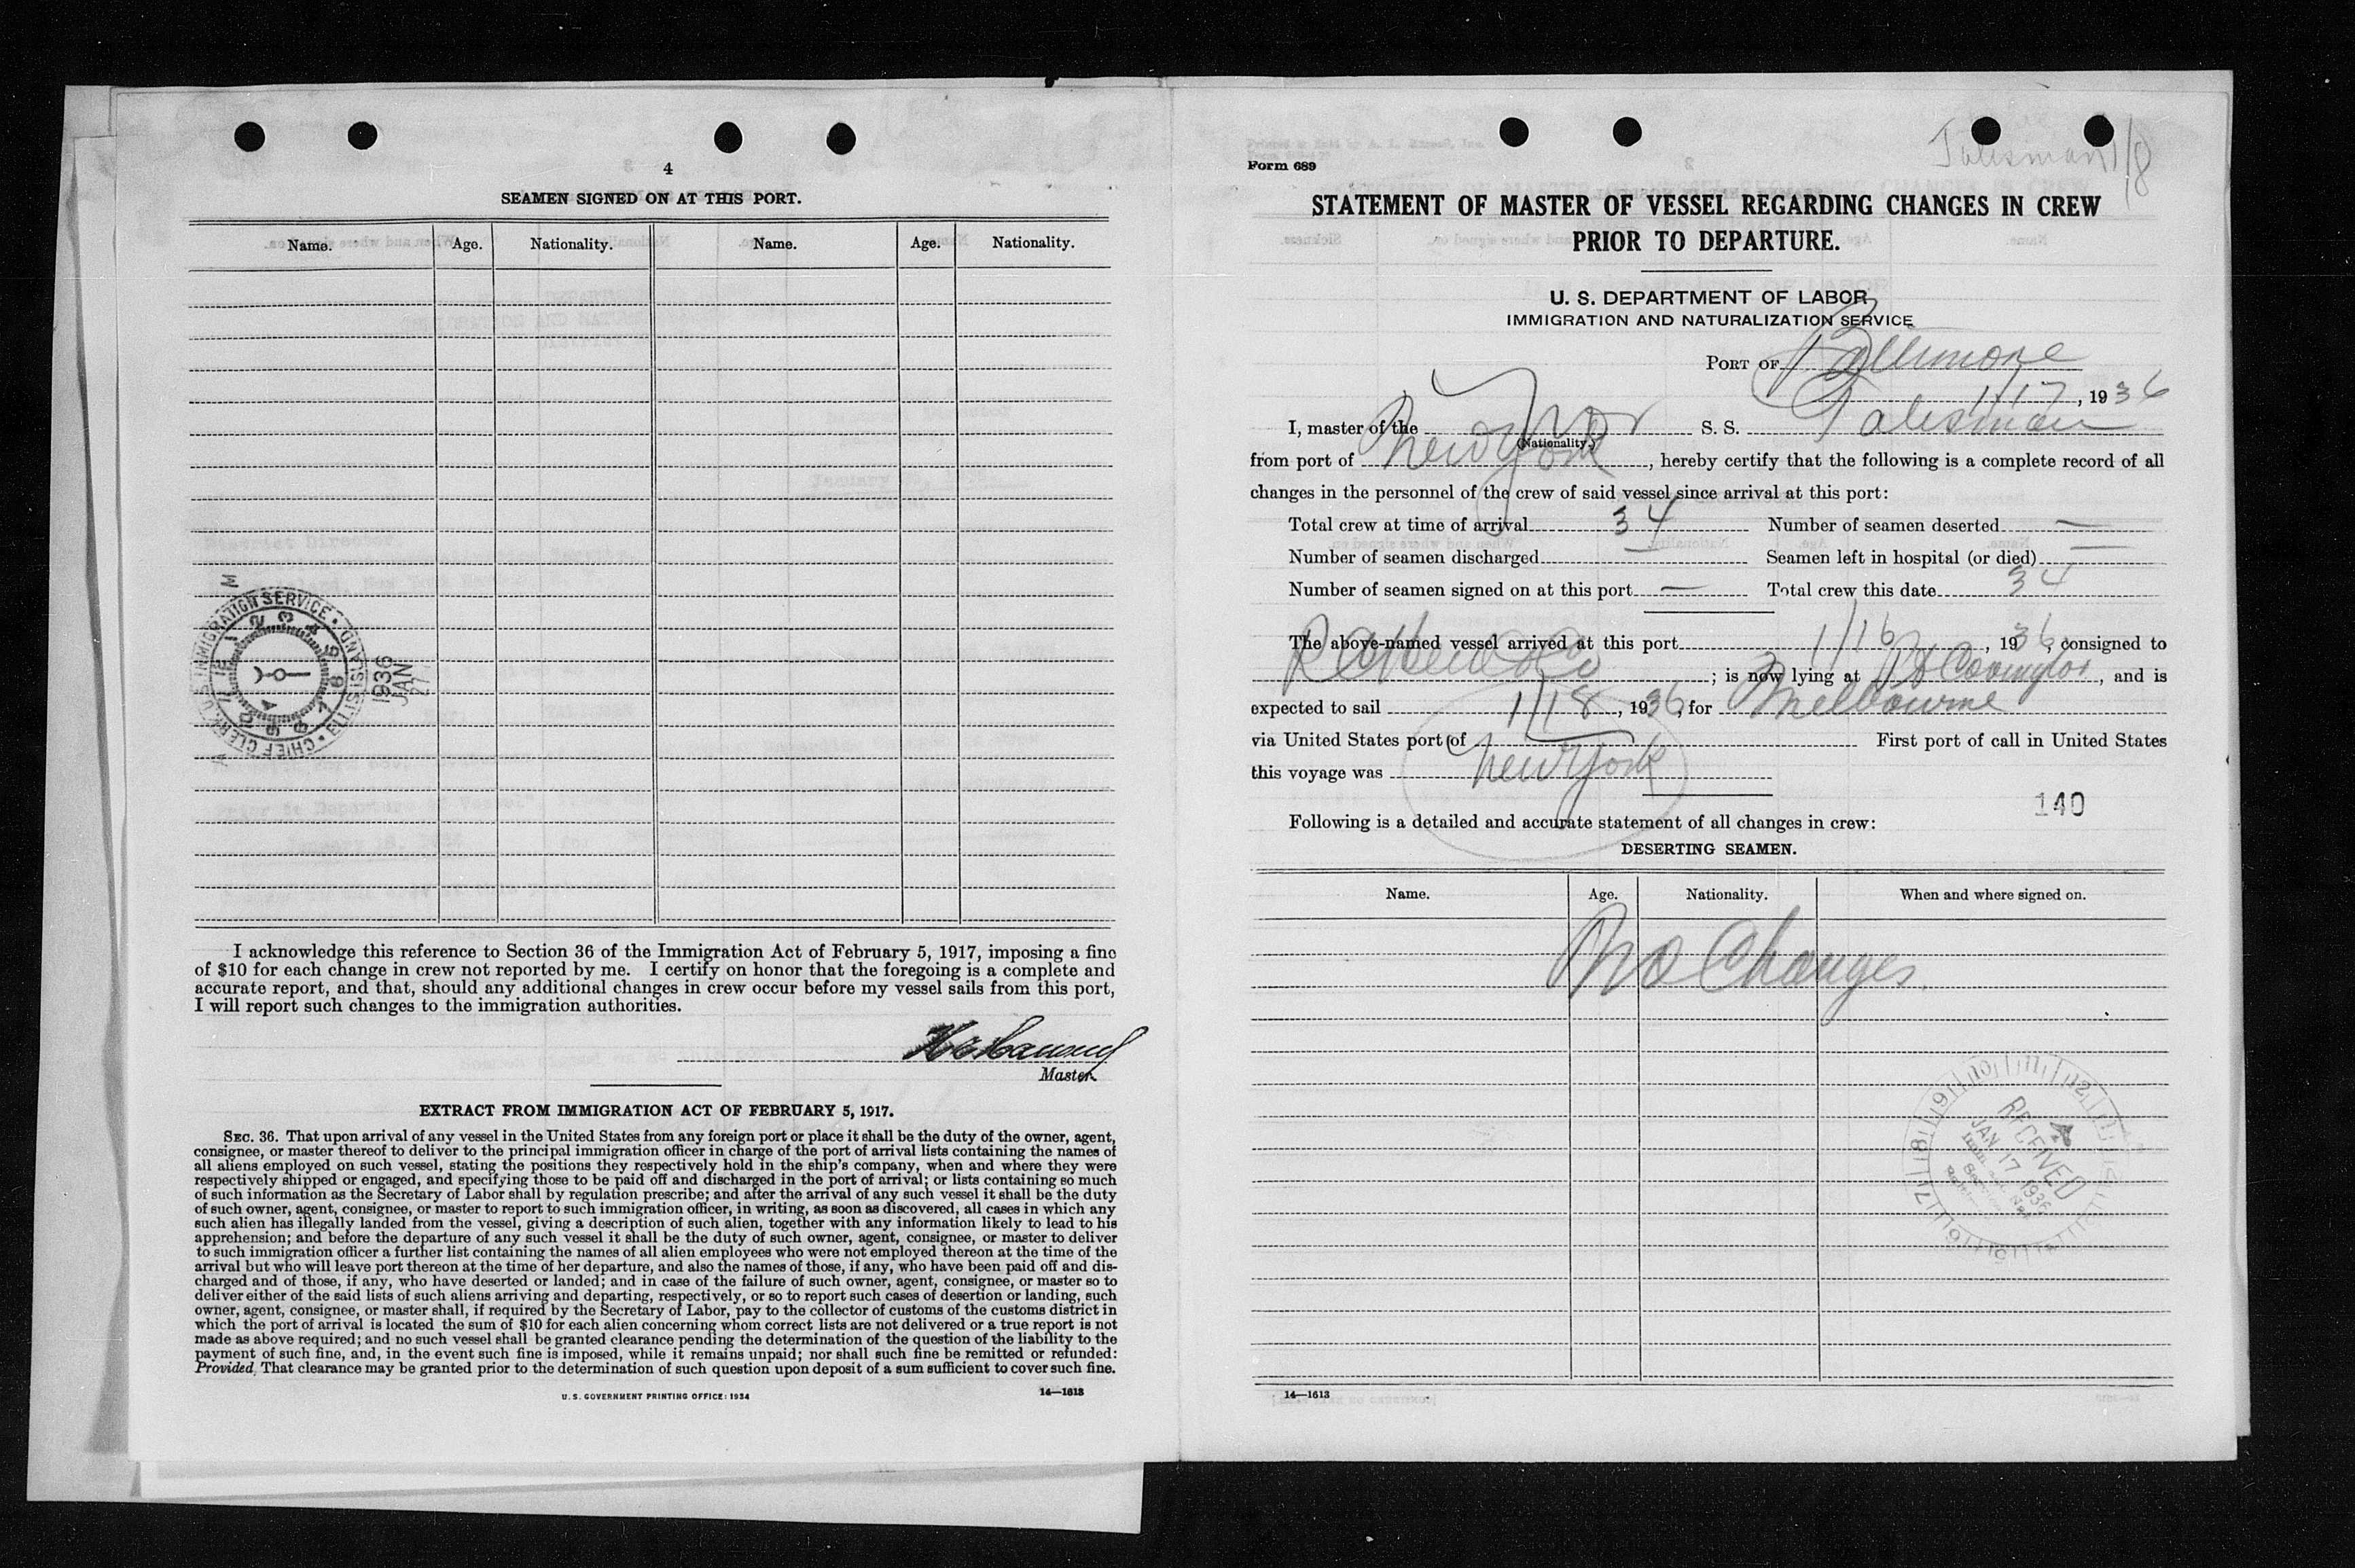 4
SEAMEN SIGNED ON AT THIS PORT.
Name. Age. Nationality. Name. Age. Nationality.
CHIEF CLERK, U.S. IMMIGRATION SERVICE • ELLIS ISLAND •
1936
JAN
27
I acknowledge this reference to Section 36 of the Immigration Act of February 5, 1917, imposing a fine
of $10 for each change in crew not reported by me. I certify on honor that the foregoing is a complete and
accurate report, and that, should any additional changes in crew occur before my vessel sails from this port,
I will report such changes to the immigration authorities.
Master.
EXTRACT FROM IMMIGRATION ACT OF FEBRUARY 5, 1917.
SEC. 36. That upon arrival of any vessel in the United States from any foreign port or place it shall be the duty of the owner, agent,
consignee, or master thereof to deliver to the principal immigration officer in charge of the port of arrival lists containing the names of
all aliens employed on such vessel, stating the positions they respectively hold in the ship's company, when and where they were
respectively shipped or engaged, and specifying those to be paid off and discharged in the port of arrival; or lists containing so much
of such information as the Secretary of Labor shall by regulation prescribe; and after the arrival of any such vessel it shall be the duty
of such owner, agent, consignee, or master to report to such immigration officer, in writing, as soon as discovered, all cases in which any
such alien has illegally landed from the vessel, giving a description of such alien, together with any information likely to lead to his
apprehension; and before the departure of any such vessel it shall be the duty of such owner, agent, consignee, or master to deliver
to such immigration officer a further list containing the names of all alien employees who were not employed thereon at the time of the
arrival but who will leave port thereon at the time of her departure, and also the names of those, if any, who have been paid off and dis-
charged and of those, if any, who have deserted or landed; and in case of the failure of such owner, agent, consignee, or master so to
deliver either of the said lists of such aliens arriving and departing, respectively, or so to report such cases of desertion or landing, such
owner, agent, consignee, or master shall, if required by the Secretary of Labor, pay to the collector of customs of the customs district in
which the port of arrival is located the sum of $10 for each alien concerning whom correct lists are not delivered or a true report is not
made as above required; and no such vessel shall be granted clearance pending the determination of the question of the liability to the
payment of such fine, and, in the event such fine is imposed, while it remains unpaid; nor shall such fine be remitted or refunded:
Provided, That clearance may be granted prior to the determination of such question upon deposit of a sum sufficient to cover such fine.
U. S. GOVERNMENT PRINTING OFFICE: 1934 14—1613
Talisman 1/18
Form 689
STATEMENT OF MASTER OF VESSEL REGARDING CHANGES IN CREW
PRIOR TO DEPARTURE.
U. S. DEPARTMENT OF LABOR
IMMIGRATION AND NATURALIZATION SERVICE
PORT OF Baltimore
1/17, 1936
I, master of the Nor S. S. Talisman
(Nationality.)
from port of New York, hereby certify that the following is a complete record of all
changes in the personnel of the crew of said vessel since arrival at this port:
Total crew at time of arrival 34 Number of seamen deserted —
Number of seamen discharged — Seamen left in hospital (or died) —
Number of seamen signed on at this port — Total crew this date 34
The above-named vessel arrived at this port 1/16, 1936, consigned to
; is now lying at Pt Covington, and is
expected to sail 1/18, 1936, for Melbourne
via United States port of First port of call in United States
this voyage was New York
140
Following is a detailed and accurate statement of all changes in crew:
DESERTING SEAMEN.
Name. Age. Nationality. When and where signed on.
No Changes
RECEIVED
JAN 17 1936
14—1613